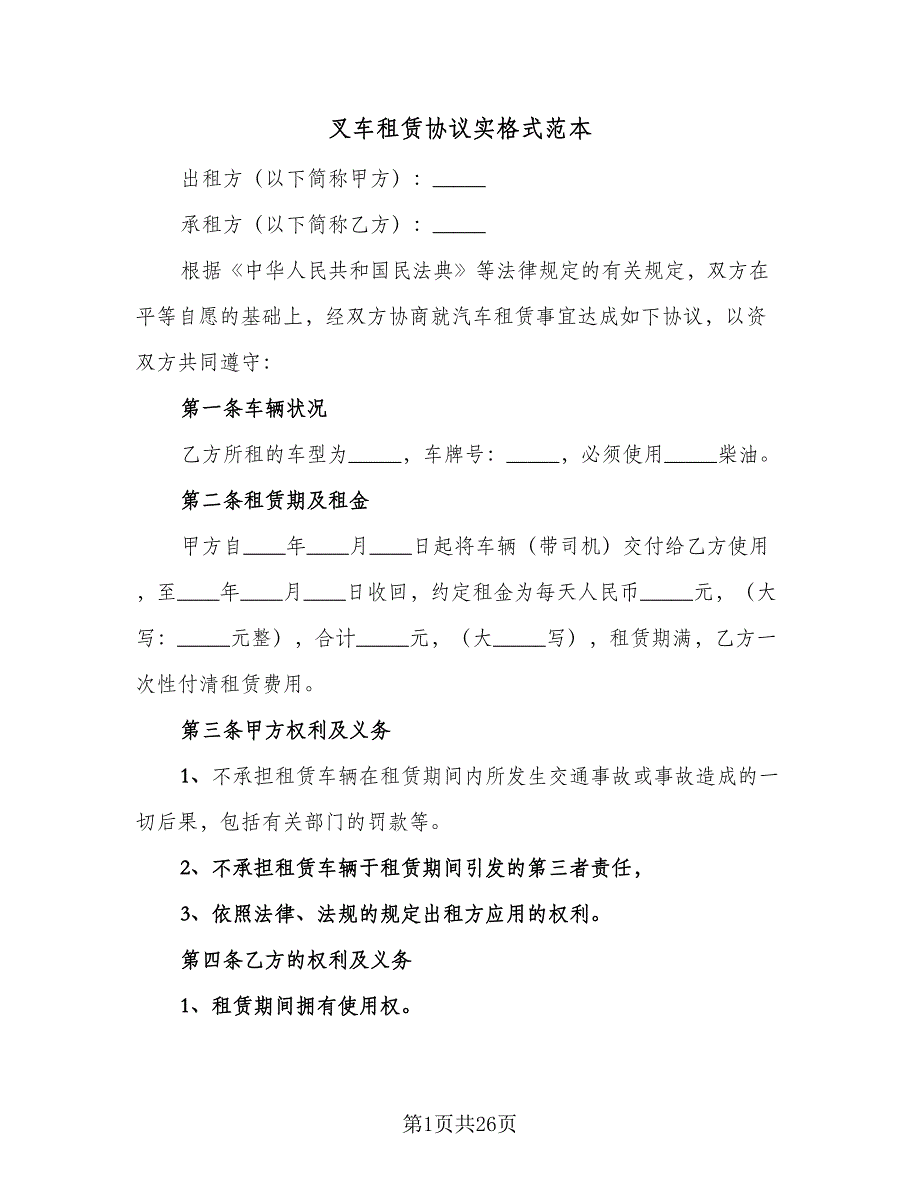 叉车租赁协议实格式范本
出租方（以下简称甲方）：_____
承租方（以下简称乙方）：_____
根据《中华人民共和国民法典》等法律规定的有关规定，双方在
平等自愿的基础上，经双方协商就汽车租赁事宜达成如下协议，以资
双方共同遵守：
第一条车辆状况
乙方所租的车型为_____，车牌号：_____，必须使用_____柴油。
第二条租赁期及租金
甲方自____年____月____日起将车辆（带司机）交付给乙方使用
，至____年____月____日收回，约定租金为每天人民币_____元，（大
写：_____元整），合计_____元，（大_____写），租赁期满，乙方一
次性付清租赁费用。
第三条甲方权利及义务
1、不承担租赁车辆在租赁期间内所发生交通事故或事故造成的一
切后果，包括有关部门的罚款等。
2、不承担租赁车辆于租赁期间引发的第三者责任，
3、依照法律、法规的规定出租方应用的权利。
第四条乙方的权利及义务
1、租赁期间拥有使用权。
第1页共26页